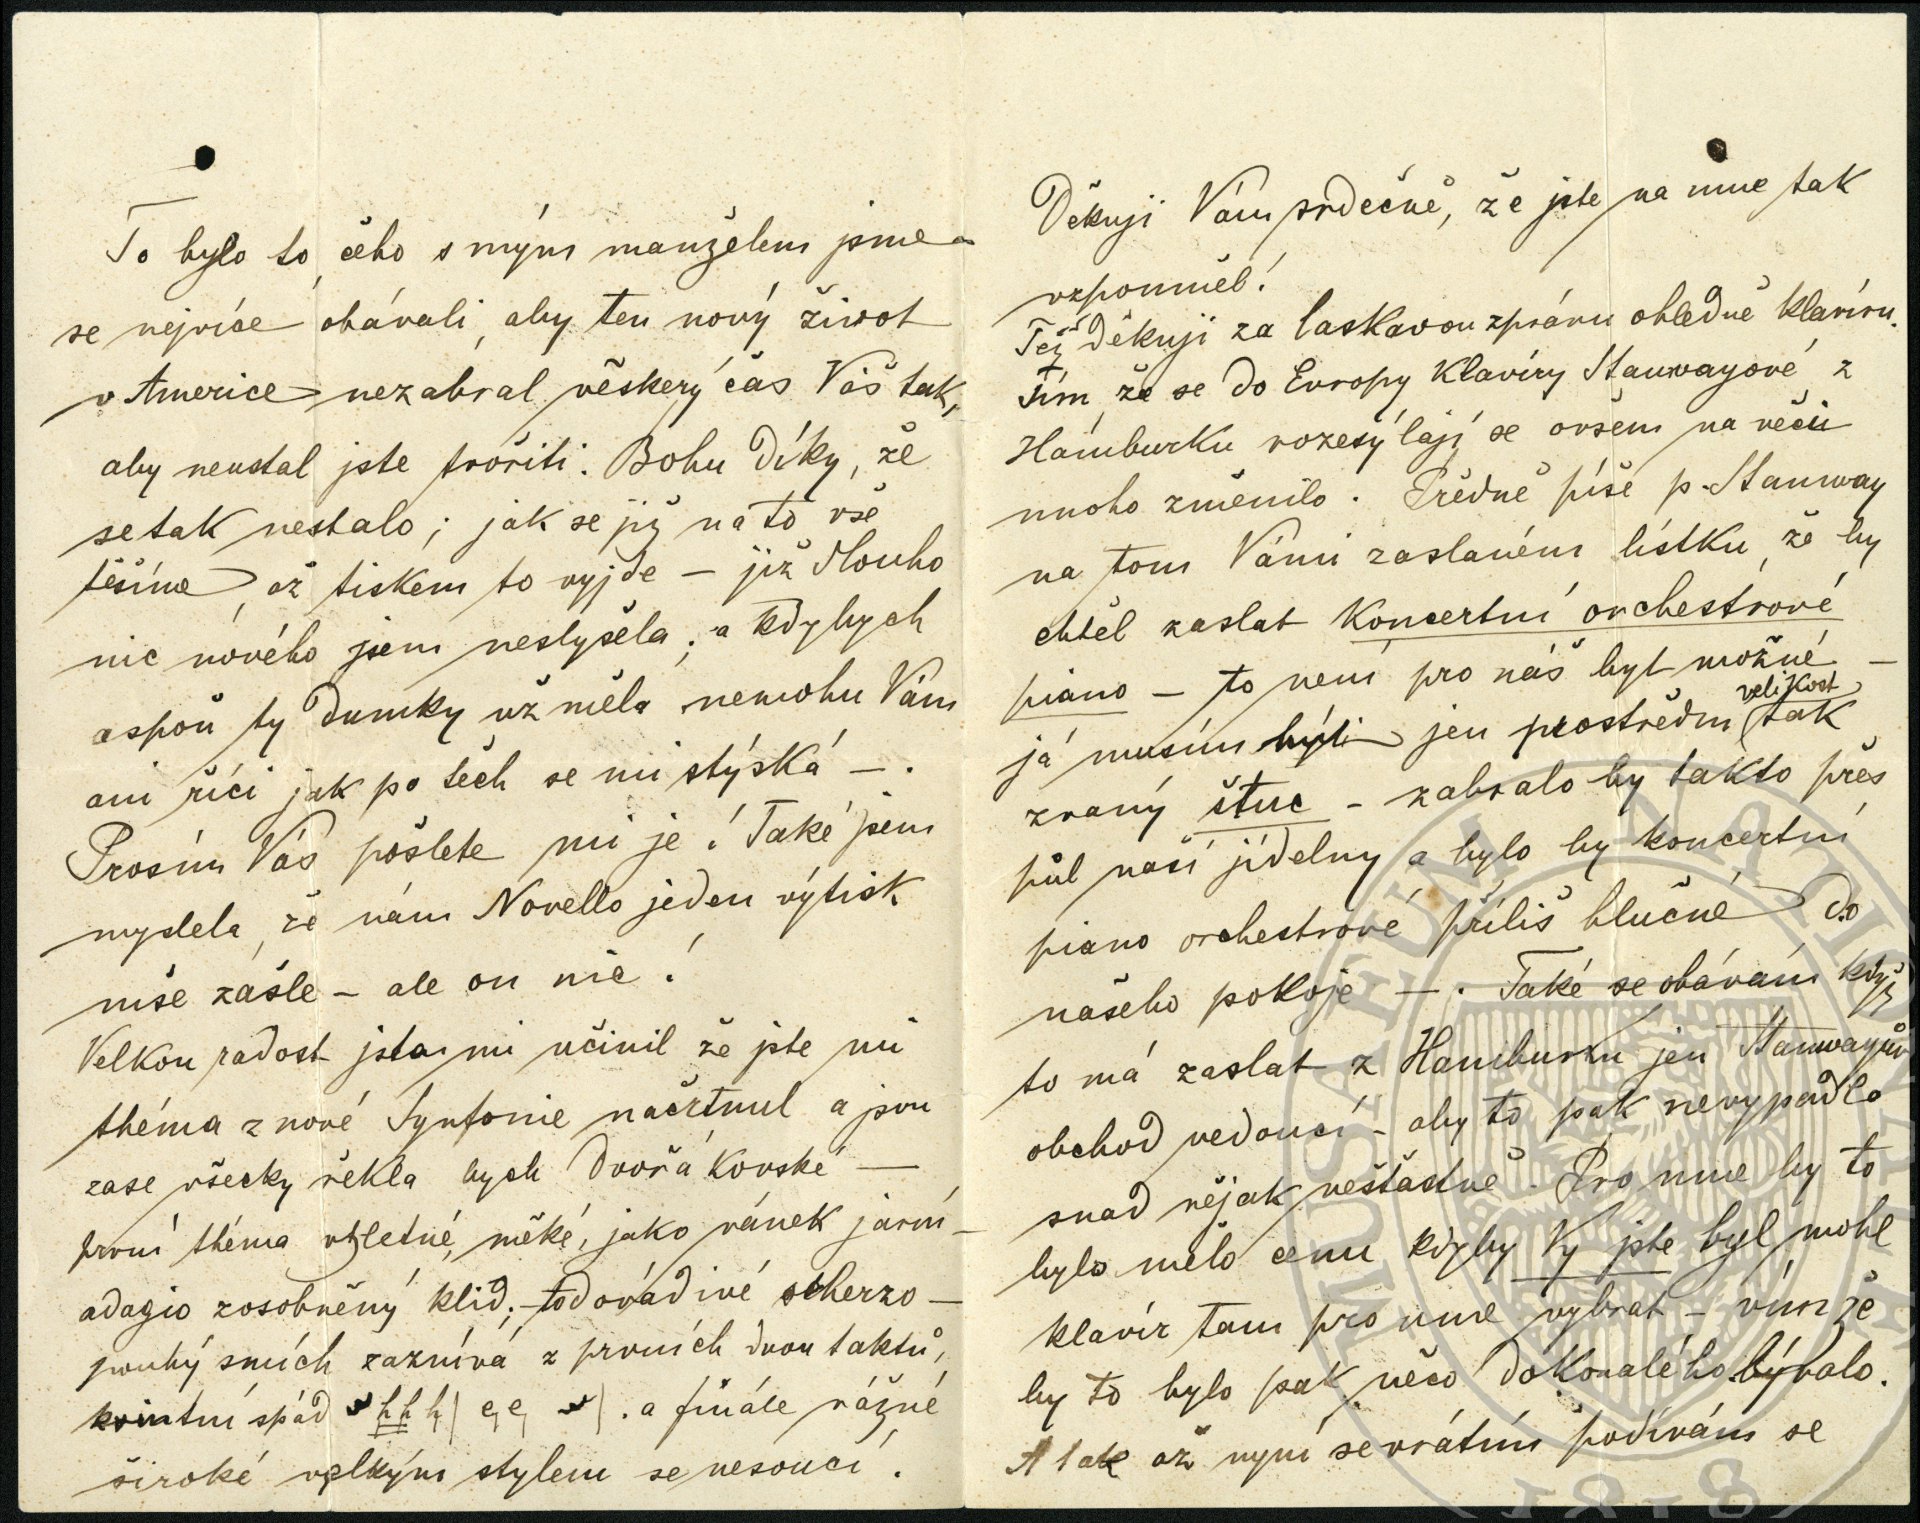 To bylo to, čeho s mým manželem jsme
se nejvíce obávali, aby ten nový život
v Americe nezabral věškerý čas Váš tak,
aby neustal jste tvořiti. Bohu díky, že
se tak nestalo; jak se již na to vše
těšíme, až tiskem to vyjde – již dlouho
nic nového jsem neslyšela; a kdybych
aspoň ty dumky už měla nemohu Vám
ani říci jak po těch se mi stýská –.
Prosím Vás pošlete mi je! Také jsem
myslela, že nám Novello jeden výtisk
mše zašle – ale on nic!
Velkou radost jste mi učinil že jste mi
théma z nové Synfonie načrtnul a jsou
zase všecky řekla bych Dvořákovské –
první théma vzletné, měké, jako vánek jarní –
adagio zosobněný klid; – to dovádivé scherzo –
pouhý smích zaznívá z prvních dvou taktů,
kvintní spád h h h | e, e, | . a finále vážné
široké velkým stylem se nesoucí.
Děkuji Vám srdečně, že jste na mne tak
vzpomněl!
Též děkuji za laskavou zprávu ohledně klavíru.
Tím, že se do Evropy Klavíry Stanwayové z
Hamburku rozesýlají se ovšem na věci
mnoho změnilo. Předně píše p. Stanway
na tom Vámi zaslaném lístku, že by
chtěl zaslat koncertní orchestrové
piano – to není pro náš byt možné –
velikost
já musím býti jen prostřední tak
zvaný štuc – zabralo by takto přes
půl naší jídelny a bylo by koncertní
piano orchestrové příliš hlučné do
našeho pokoje –. Také se obávám když
to má zaslat z Hamburku jen Stanwayův
obchod vedoucí – aby to pak nevypadlo
snad nějak nešťastně. Pro mne by to
bylo mělo cenu kdyby Vy jste byl mohl
klavír tam pro mne vybrat – vím že
by to bylo pak něco dokonalého bývalo.
A tak až nyní se vrátím podívám se
MUSAEUM NATIONALE
1818